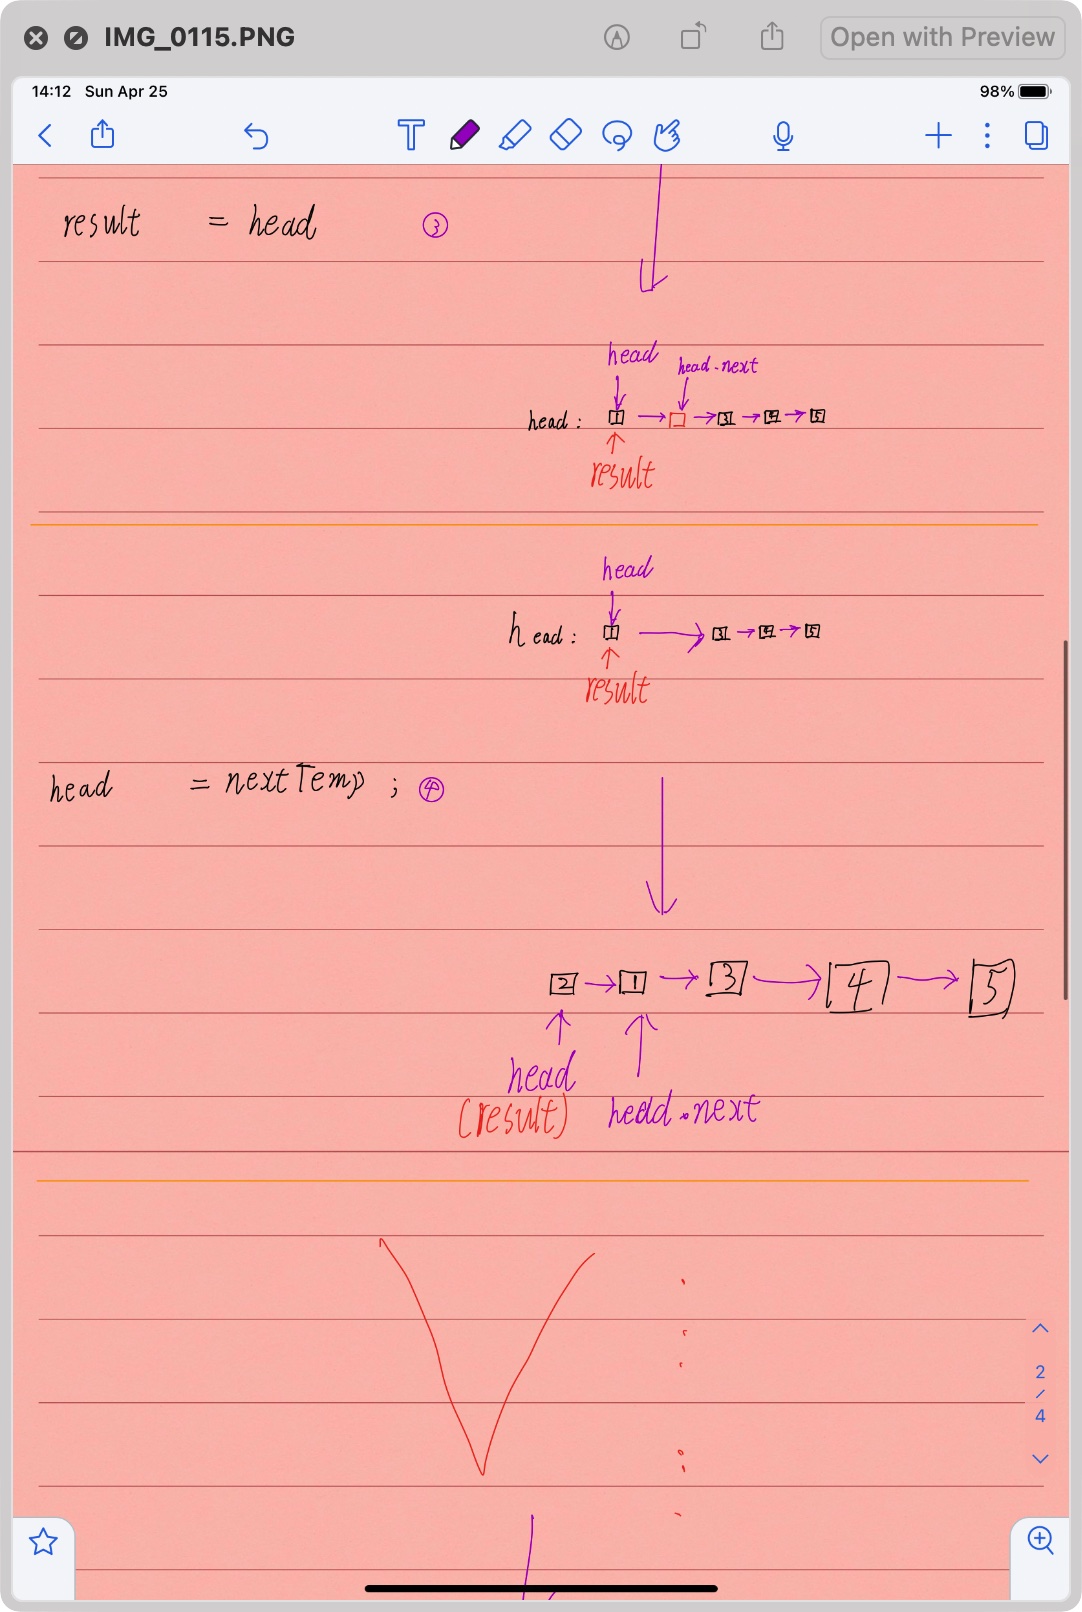 IMG_0115.PNG
Open with Preview
14:12 Sun Apr 25
98%
T
result = head ③
head
head.next
head: 1 3 4 5
result
head
head: 1 3 4 5
result
head = nextTemp ; ④
2 1 3 4 5
head
(result)
head.next
2
/
4